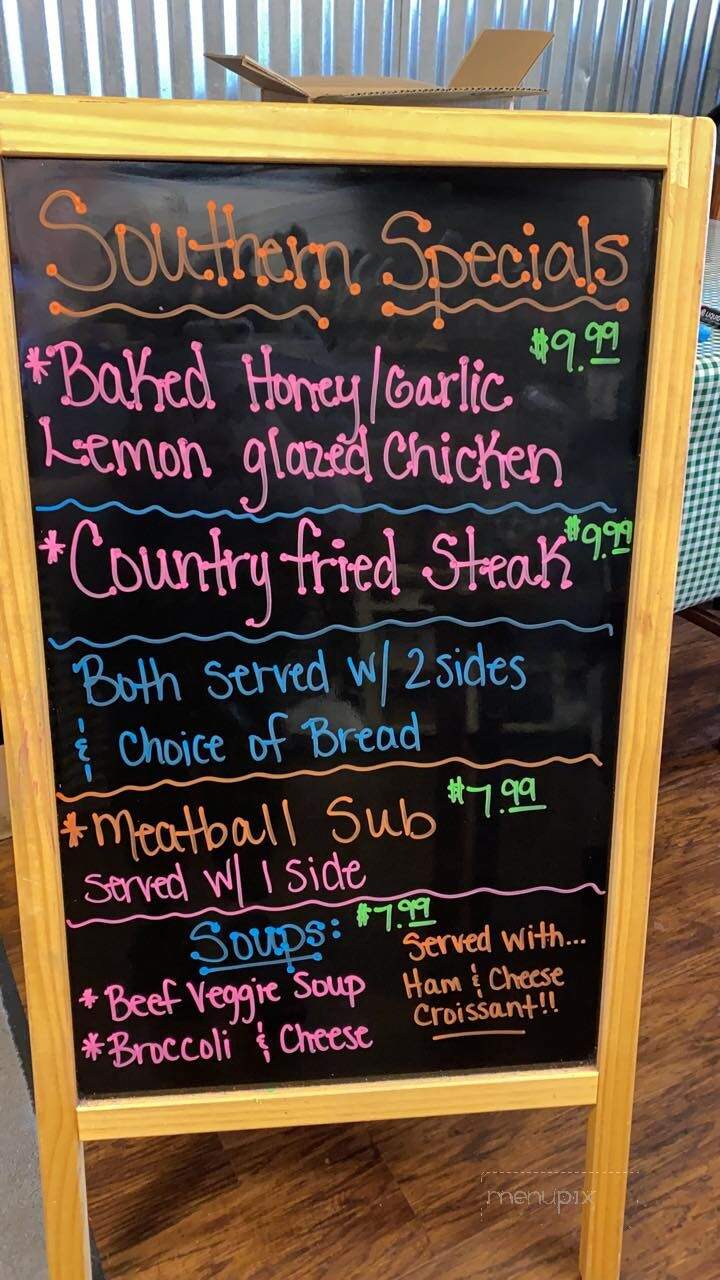 Southern Specials
$9.99
*Baked Honey/Garlic
Lemon glazed Chicken
*Country fried Steak $9.99
Both served w/ 2 sides
& Choice of Bread
*Meatball Sub $7.99
Served w/ 1 side
Soups: $7.99
Served with...
Ham & Cheese
Croissant!!
*Beef Veggie Soup
*Broccoli & Cheese
menupix